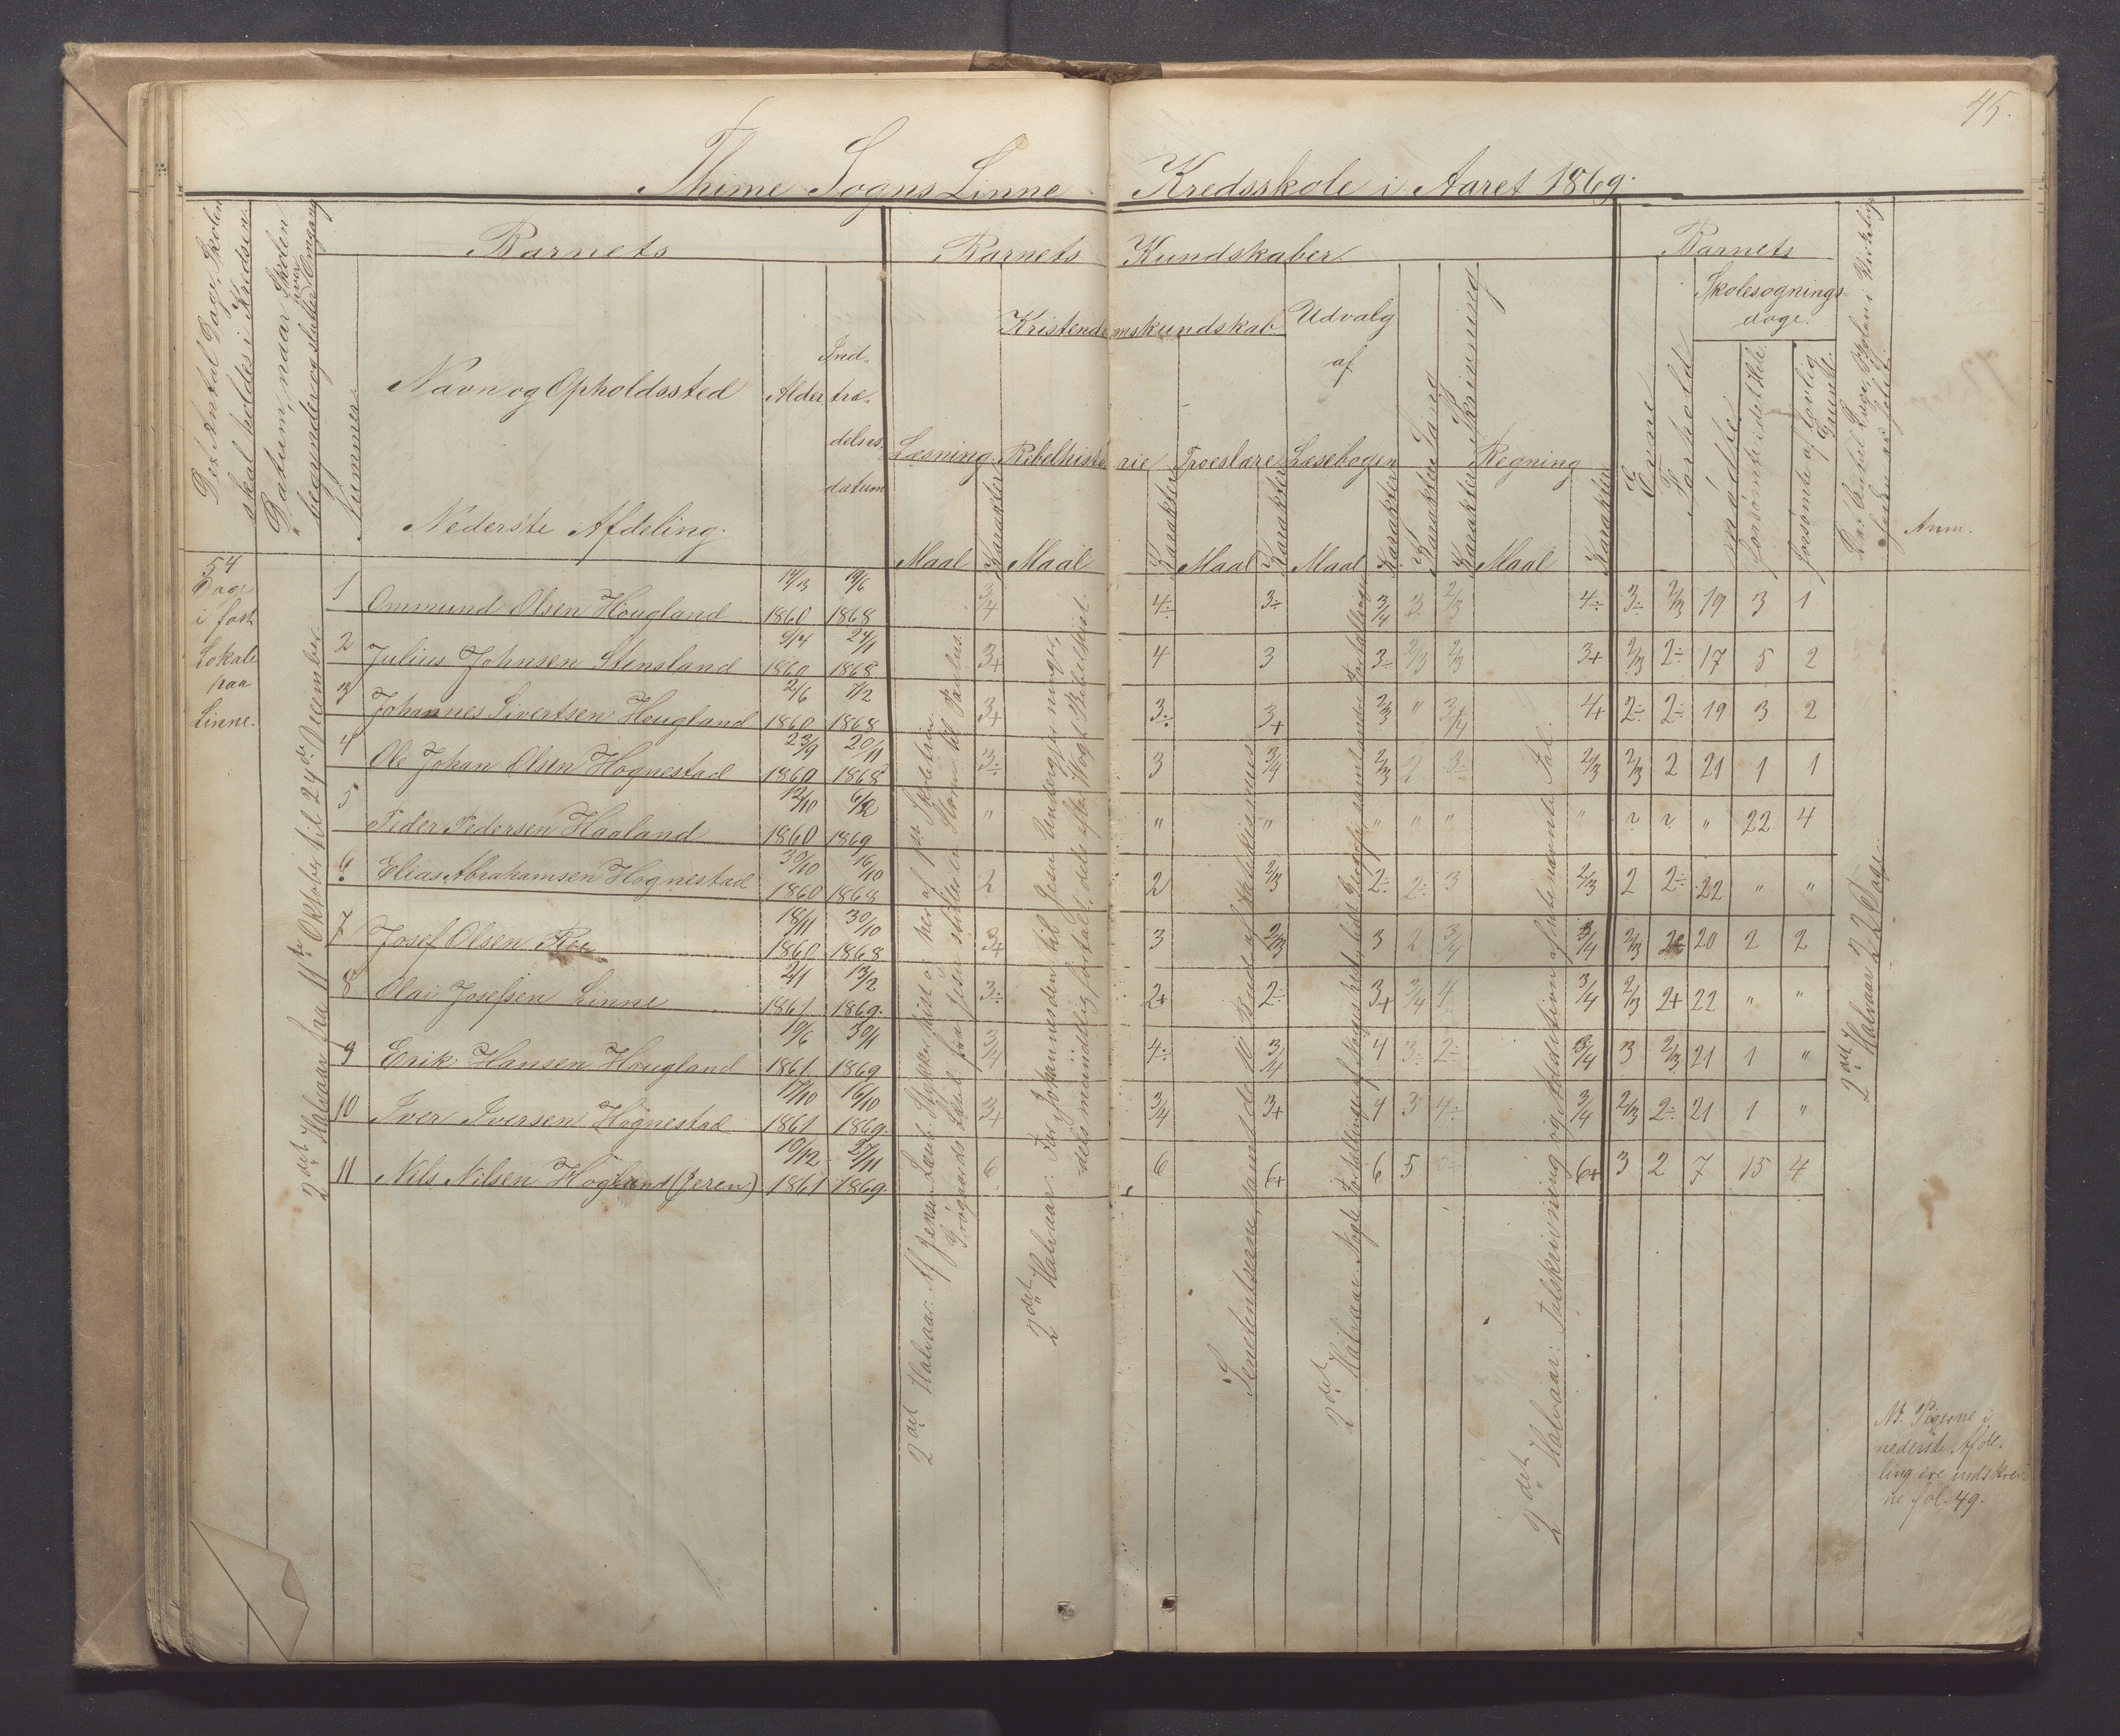 45.
Thime Sogns Linne Kredsskole i Aaret 1869.
Det Antal Dage, Skolen skal holdes i Kredsen.
Datum, naar Skolen begynder og slutter hver Omgang
Nummer.
Barnets
Navn og Opholdssted
Alder
Indtrædelsesdatum
Nederste Afdeling.
Barnets Kundskaber
Læsning
Maal
Karakter
Kristendomskundskab
Bibelhistorie
Maal
Karakter
Troeslære
Maal
Karakter
Udvalg af Læsebogen
Maal
Karakter
Sang
Karakter
Skrivning
Karakter
Regning
Maal
Karakter
Evne
Forhold
Barnets
Skolesøgningsdage.
mødte
forsømte i det Hele.
forsømte af lovlig Grund.
Det Antal Dage, Skolen i Virkelighed
Anm.
54 Dage i fast Lokale paa Linne.
2det Halvaar fra 11te Oktober til 24de December.
1 Ommund Olsen Hougland 14/3 1860 19/6 1868 3/4 4÷ 3÷ 3/4 3 2/3 4÷ 3÷ 2/3 19 3 1
2 Julius Johnsen Stensland 9/4 1860 24/11 1868 3+ 4 3 3÷ 2/3 2/3 3+ 2/3 2÷ 17 5 2
3 Johannes Sivertsen Hougland 2/6 1860 7/2 1868 3+ 3÷ 3+ 2/3 " 3/4 4+ 2÷ 2÷ 19 3 2
4 Ole Johan Olsen Hognestad 23/9 1860 20/11 1868 3÷ 3 3/4 2/3 2 3÷ 2/3 2/3 2 21 1 1
5 Peder Pedersen Haaland 12/10 1860 6/12 1869 " " " " " " " ? ? " 22 4
6 Elias Abrahamsen Hognestad 30/10 1860 16/10 1868 2 2 2/3 2÷ 2÷ 3 2/3 2 2÷ 22 " "
7 Josef Olsen Roe 18/11 1860 30/10 1868 3+ 3 2/3 3 2 3/4 3/4 2/3 2 20 2 2
8 Olai Josefsen Linne 2/1 1861 13/2 1869. 3÷ 2+ 2÷ 3+ 3/4 4 3/4 2/3 2+ 22 " "
9 Erik Hansen Hougland 10/6 1861 30/11 1869 3/4 4÷ 3/4 4 3÷ 2÷ 3/4 3 2/3 21 1 "
10 Iver Iversen Hognestad 17/10 1861 16/10 1869. 3+ 3/4 3+ 4 3 4÷ 3/4 2/3 2÷ 21 1 "
11 Nils Nilsen Hogland (Jeren) 10/12 1861 27/11 1869. 6 6 6+ 6 5 6+ 3 2 7 15 4
2det Halvaar: Af Jensens Læseb. Stykker hist og her af 1ste Skoletrin.
2det Halvaar: Før Johannes den til Jesu
dels mundtlig fortalt, dels efter Vogts Bibelhist.
Sententserne samt de 10 Bud af Katekismus
2det Halvaar: Nogle Fortellinger af
2det Halvaar: Talskrivning og Addition af ubenævnte Tal.
2det Halvaar 22 Dage.
NB. Pigerne i
nederste Afde-
ling ere indskrev-
ne fol. 49.